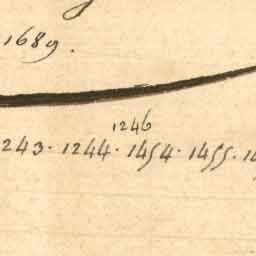 1689.
1246
243. 1244. 1454. 1455. 14